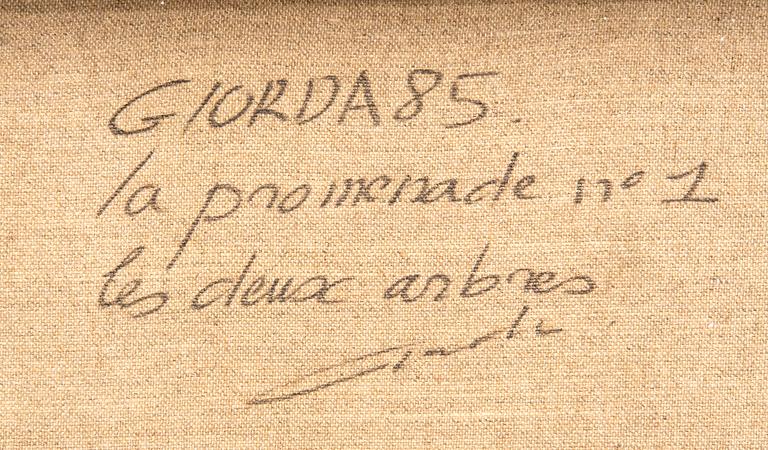 GIORDA 85.
la promenade n° 1
les deux arbres
Giorda